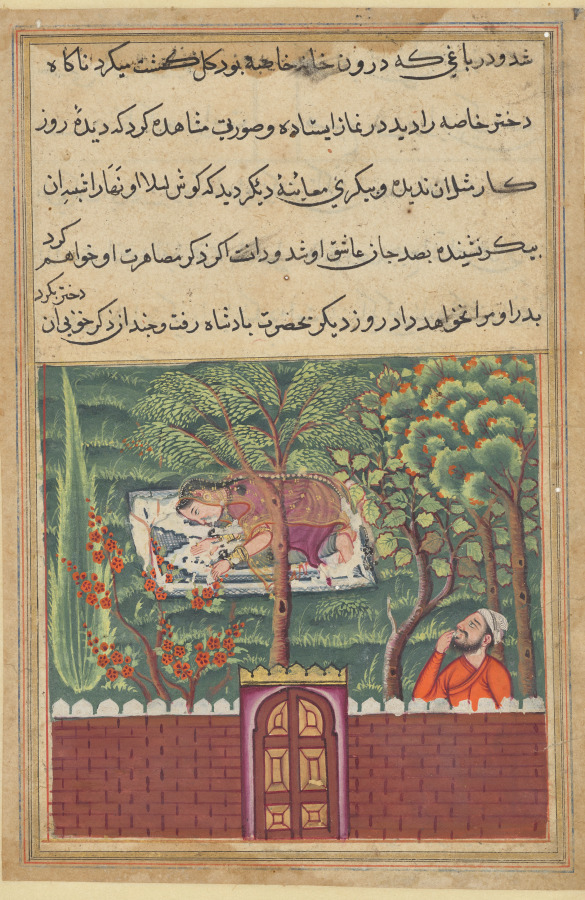 شد و در باغی که درون خانه خاصه بود کل کشت میکرد ناکاه
دختر خاصه را دید در نماز ایستاده و صورتی مشاهده کرد که دیدهٔ روز
کار مثل ان ندیده و پیکری معاینهٔ دیکر دید که کوش لیلا و نهار
پیکر نشینده بصد جان عاشق او شد و دانست اکر ذکر مصاهرت او خواهم کرد
پدر او مرا نخواهد داد روز دیکر بحضرت بادشاه رفت و چند از ذکر خوبی ان
دختر بکرد